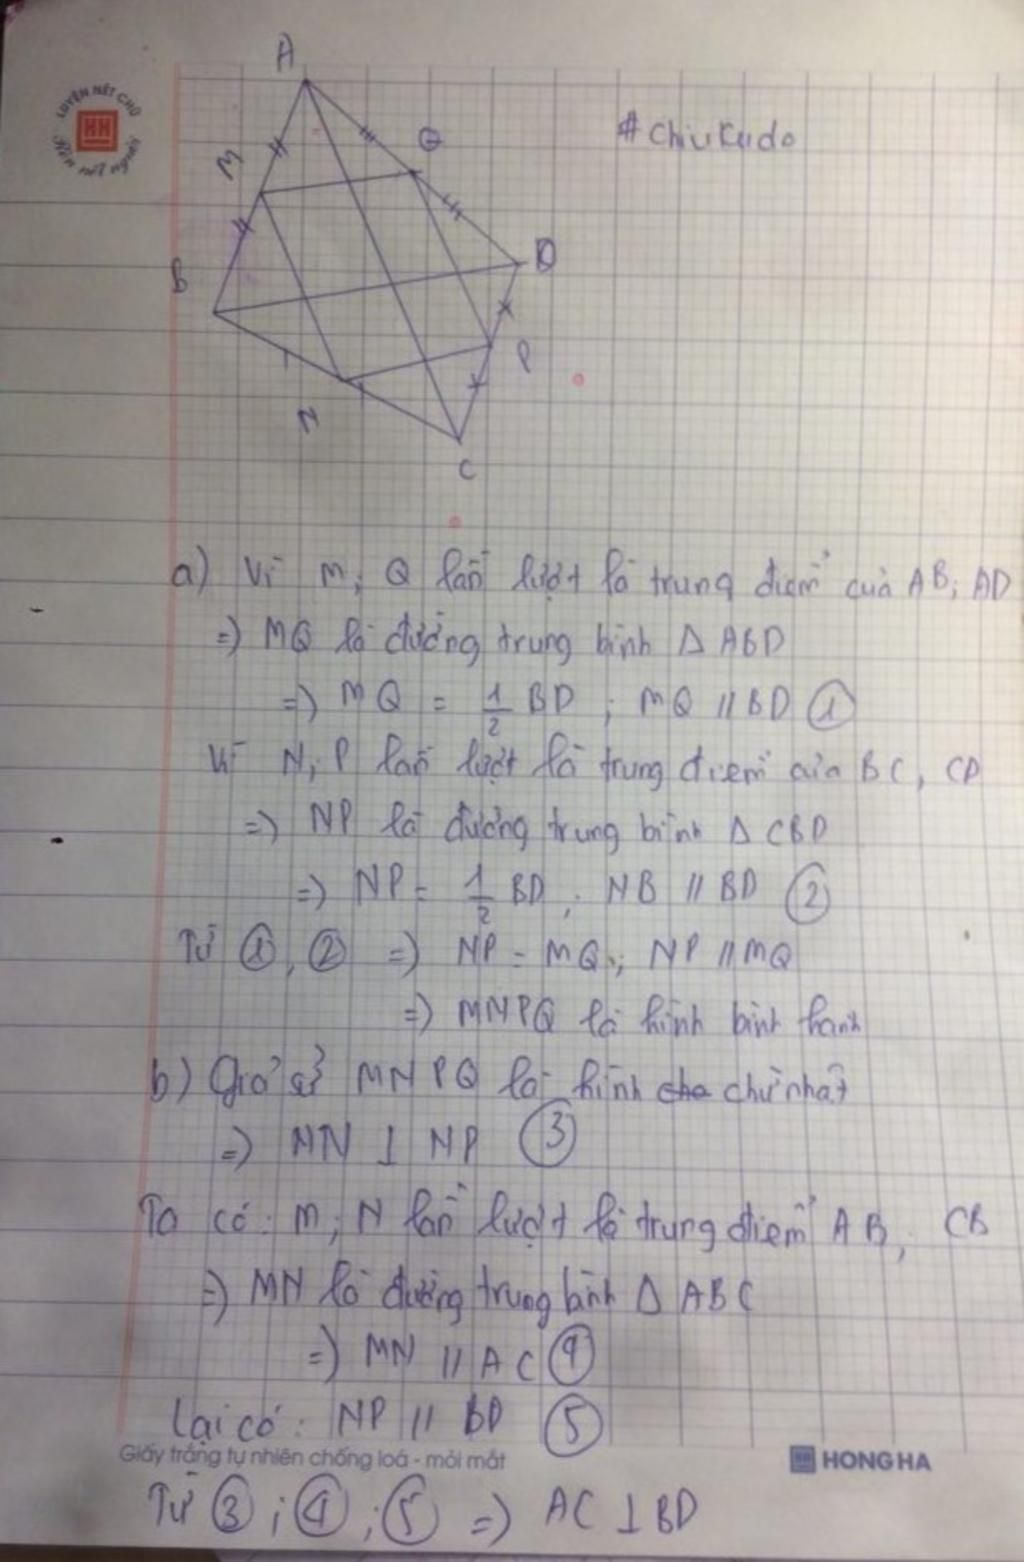 LUYỆN NÉT CHỮ
HH
Rèn nết người
A
#Chiukudo
M
Q
B
D
P
N
C
a) Vì M; Q lần lượt là trung điểm của AB; AD
=) MQ là đường trung bình Δ ABD
=) MQ = 1/2 BD ; MQ // BD ①
Vì N; P lần lượt là trung điểm của BC, CD
=) NP là đường trung bình Δ CBD
=) NP = 1/2 BD ; NB // BD ②
Từ ①, ② =) NP = MQ ; NP // MQ
=) MNPQ là hình bình hành
b) Giả sử MNPQ là hình chữ nhật
=) MN ⊥ NP ③
Ta có: M; N lần lượt là trung điểm AB, CB
=) MN là đường trung bình Δ ABC
=) MN // AC ④
Lại có: NP // BD ⑤
Giấy trắng tự nhiên chống loá - mỏi mắt
HONG HA
Từ ③; ④; ⑤ =) AC ⊥ BD